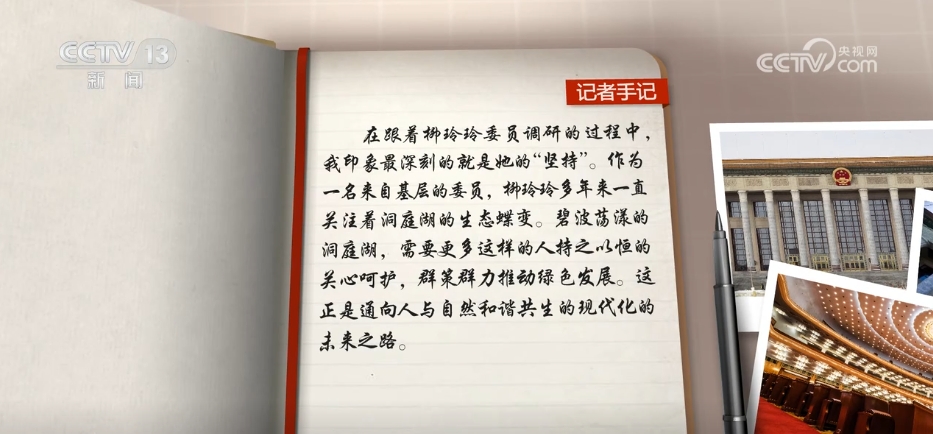 CCTV 13
新闻
央视网
CCTV.com
记者手记
在跟着柳玲玲委员调研的过程中，
我印象最深刻的就是她的“坚持”。作为
一名来自基层的委员，柳玲玲多年来一直
关注着洞庭湖的生态蝶变。碧波荡漾的
洞庭湖，需要更多这样的人持之以恒的
关心呵护，群策群力推动绿色发展。这
正是通向人与自然和谐共生的现代化的
未来之路。